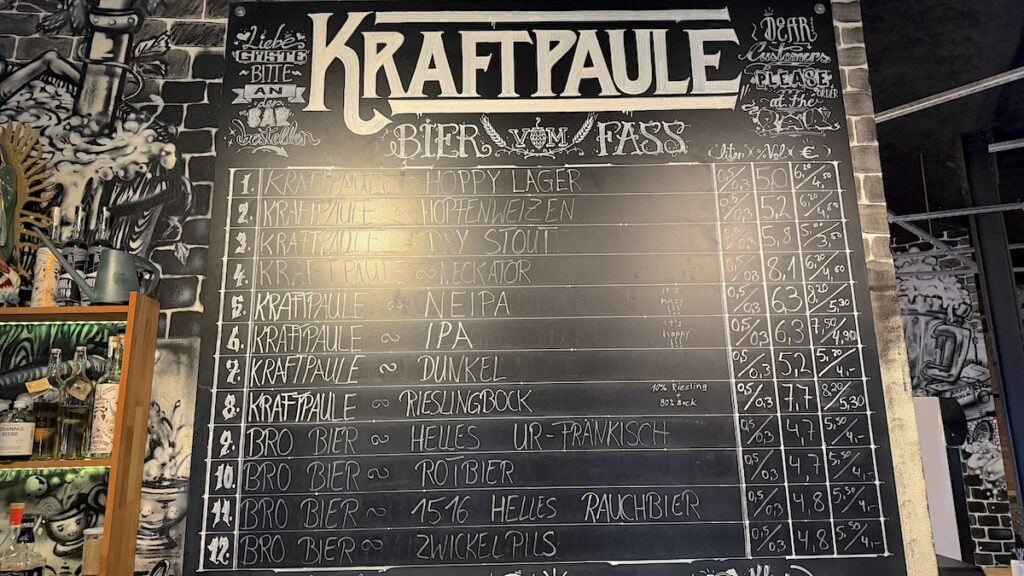 Liebe
GÄSTE
BITTE
AN
der
BAR
bestellen
KRAFTPAULE
DEAR
Coustumers
PLEASE
ORDER
at the
BAR
BIER VOM FASS
(liter) % Vol €
1. KRAFTPAULE ~ HOPPY LAGER 0,5/0,3 5,0
2. KRAFTPAULE ~ HOPFENWEIZEN 0,5/0,3 5,2
3. KRAFTPAULE ~ DRY STOUT 0,5/0,3 5,8
4. KRAFTPAULE ~ NECKATOR 0,5/0,3 8,1
5. KRAFTPAULE ~ NEIPA it's hazy !!! 0,5/0,3 6,3 8,20/5,30
6. KRAFTPAULE ~ IPA it's hoppy !!! 0,5/0,3 6,3 7,50/4,90
7. KRAFTPAULE ~ DUNKEL 0,5/0,3 5,2
8. KRAFTPAULE ~ RIESLINGBOCK 10% Riesling + 90% Bock 0,5/0,3 7,7 8,20/5,30
9. BRO BIER ~ HELLES UR-FRÄNKISCH 0,5/0,3 4,7 5,50/4,-
10. BRO BIER ~ ROTBIER 0,5/0,3 4,7 5,50/4,-
11. BRO BIER ~ 1516 HELLES RAUCHBIER 0,5/0,3 4,8 5,50/4,-
12. BRO BIER ~ ZWICKELPILS 0,5/0,3 4,8 5,50/4,-